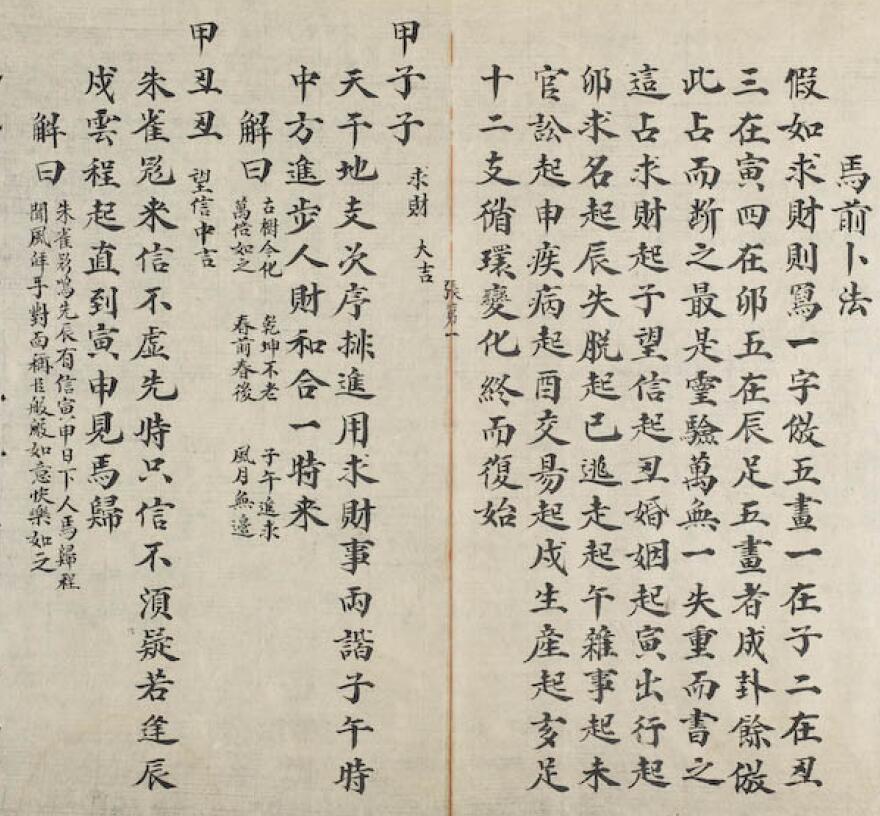 馬前卜法
假如求財則寫一字倣五畫一在子二在丑
三在寅四在卯五在辰足五畫者成卦餘倣
此占而断之最是霊驗萬無一失重而書之
這占求財起子望信起丑婚姻起寅出行起
卯求名起辰失脱起巳逃走起午雜事起未
官訟起申疾病起酉交易起戌生產起亥足
十二支循環變化終而復始
張第一
甲子子 求財 大吉
天干地支次序排進用求財事両諧子午時
中方進步人財和合一時来
解曰
古樹今化 乾坤不老 子午進求
萬倍如之 春前春後 風月無邉
甲丑丑 望信中吉
朱雀来信不虚先時只信不須疑若逢辰
戌雲程起直到寅申見馬歸
解曰
朱雀鳴先辰有信寅申日下人馬歸程
聞風手對面稱臣般般如意快樂如之